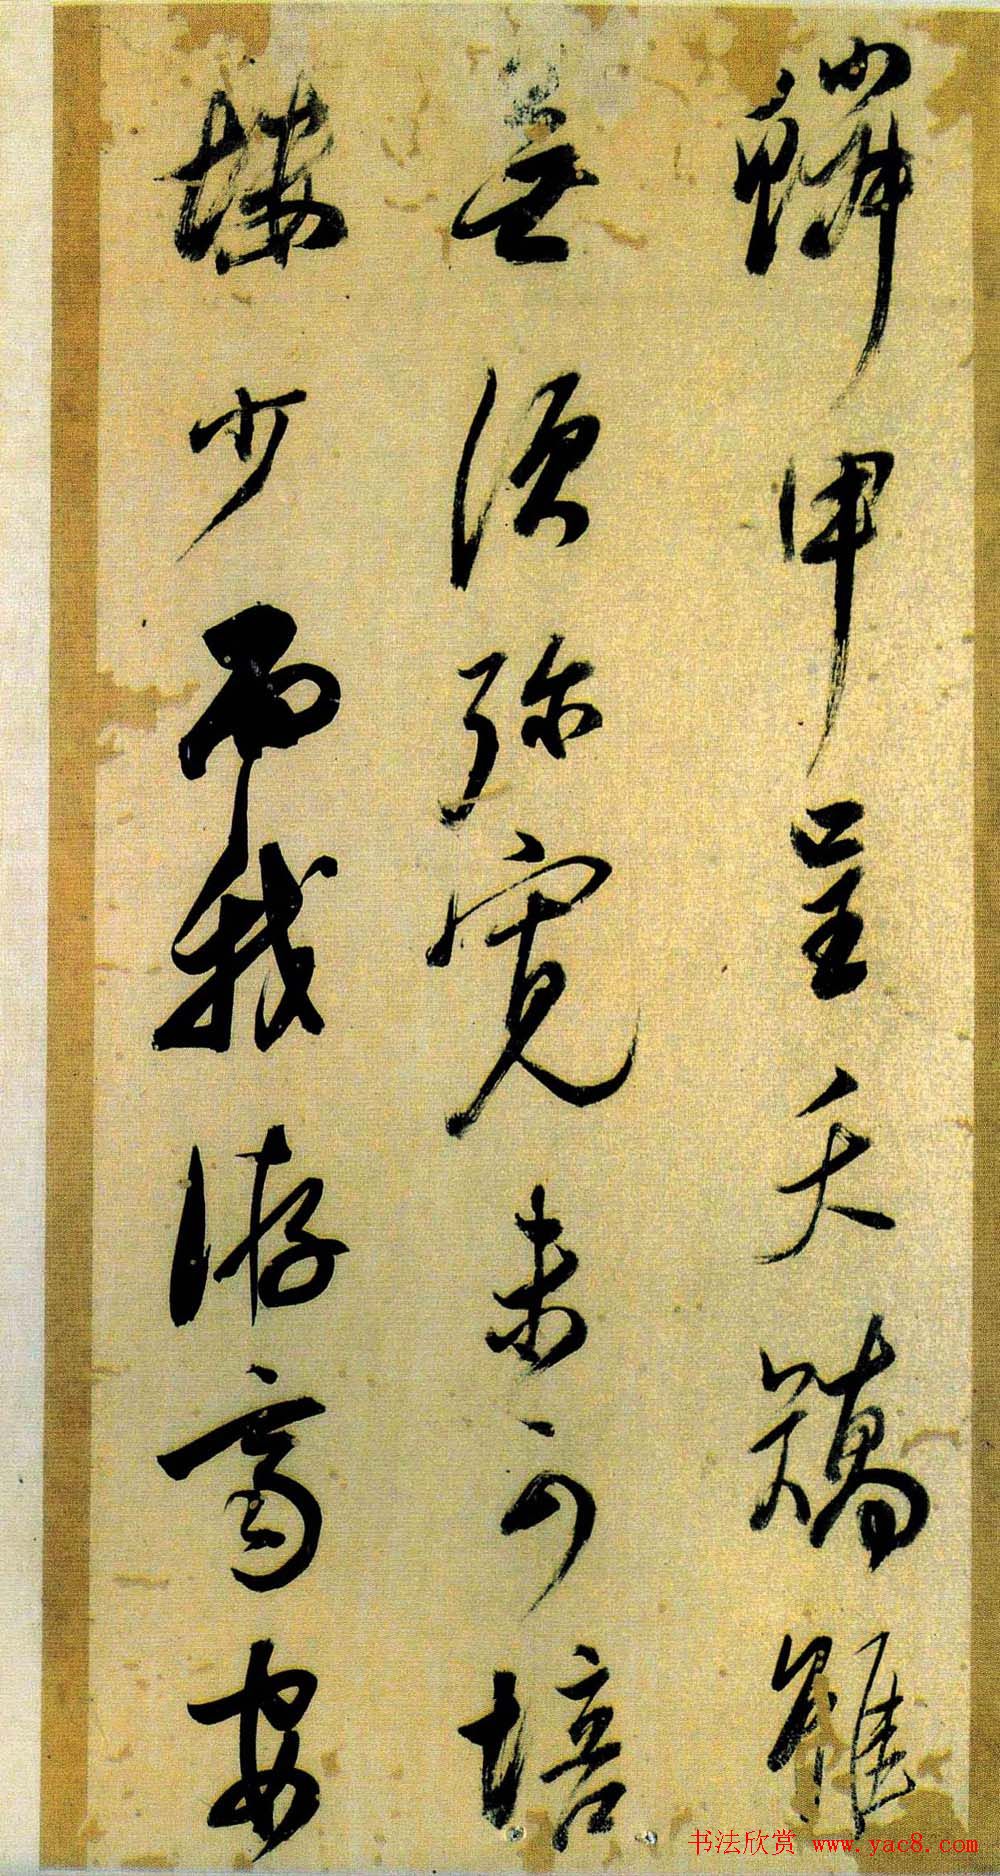 鱗甲呈夭矯雖
無須弥寬未可培
塿少而我游高安
书法欣赏 www.yac8.com